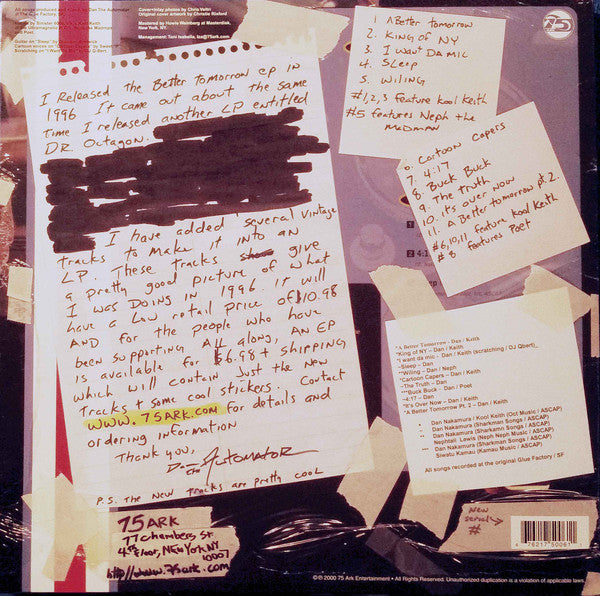 Cover+inlay photos by Chris Veltri
Original cover artwork by Christie Rixford
Mastered by Howie Weinberg at Masterdisk,
New York, NY.
Management: Toni Isabella, iza@75ark.com
75
1 A Better tomorrow
2. King of NY
3. I want Da mic
4 Sleep
5. Wiling
#1,2,3 feature Kool Keith
#5 features Neph the
madman
6. Cartoon Capers
7. 4:17
8 Buck Buck
9. The truth
10. it's over now
11. A Better tomorrow pt. 2
#6,10,11 feature Kool Keith
#8 features Poet
I Released the Better Tomorrow ep in
1996 It came out about the same
time I released another LP entitled
DR. Octagon.
I have added several vintage
tracks to make it into an
LP. These tracks give
a pretty good picture of what
I was Doing in 1996. it will
have a low retail price of $10.98
AND for the people who have
been supporting all along, AN EP
is available for $6.98 + shipping
which will contain just the new
tracks + some cool stickers. Contact
www.75ARK.com for details and
ordering information
Thank you,
Dan the Automator
P.S. The new tracks are pretty cool
"A Better Tomorrow - Dan / Keith
*King of NY - Dan / Keith
*I want da mic - Dan / Keith (scratching / DJ Qbert)
-Sleep - Dan
**Wiling - Dan / Neph
*Cartoon Capers - Dan / Keith
-The Truth - Dan
***Buck Buck - Dan / Poet
-4:17 - Dan
*It's Over Now - Dan / Keith
*A Better Tomorrow Pt. 2 - Dan / Keith
* Dan Nakamura / Kool Keith (Oct Music / ASCAP)
- Dan Nakamura (Sharkman Songs / ASCAP)
** Dan Nakamura (Sharkman Songs / ASCAP)
Nephtali Lewis (Neph Neph Music / ASCAP)
*** Dan Nakamura (Sharkman Songs / ASCAP)
Siwatu Kamau (Kamau Music / ASCAP)
All songs recorded at the original Glue Factory / SF
75 ARK
77 Chambers St
4th Floor, New York NY
10007
http://www.75ark.com
New
serial
#
6 76217 50061 1
©℗ 2000 75 Ark Entertainment • All Rights Reserved. Unauthorized duplication is a violation of applicable laws.